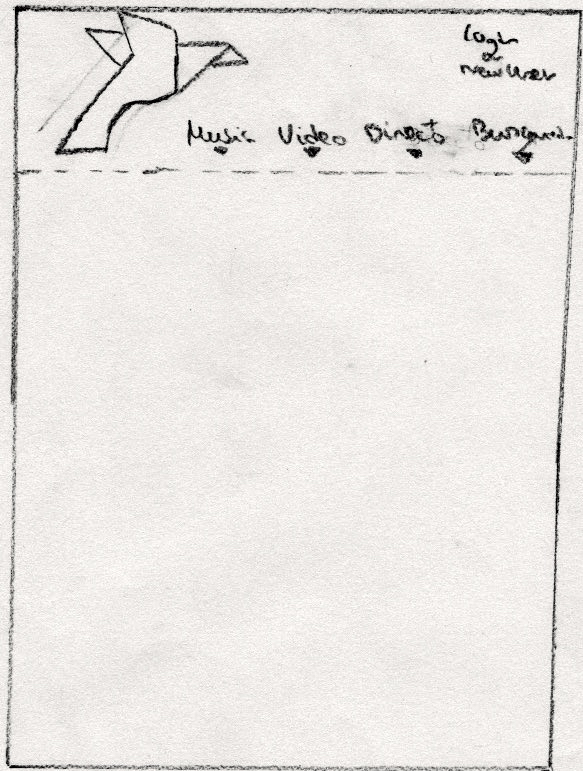 Login
or
new User
Music Video Directo Busqueda